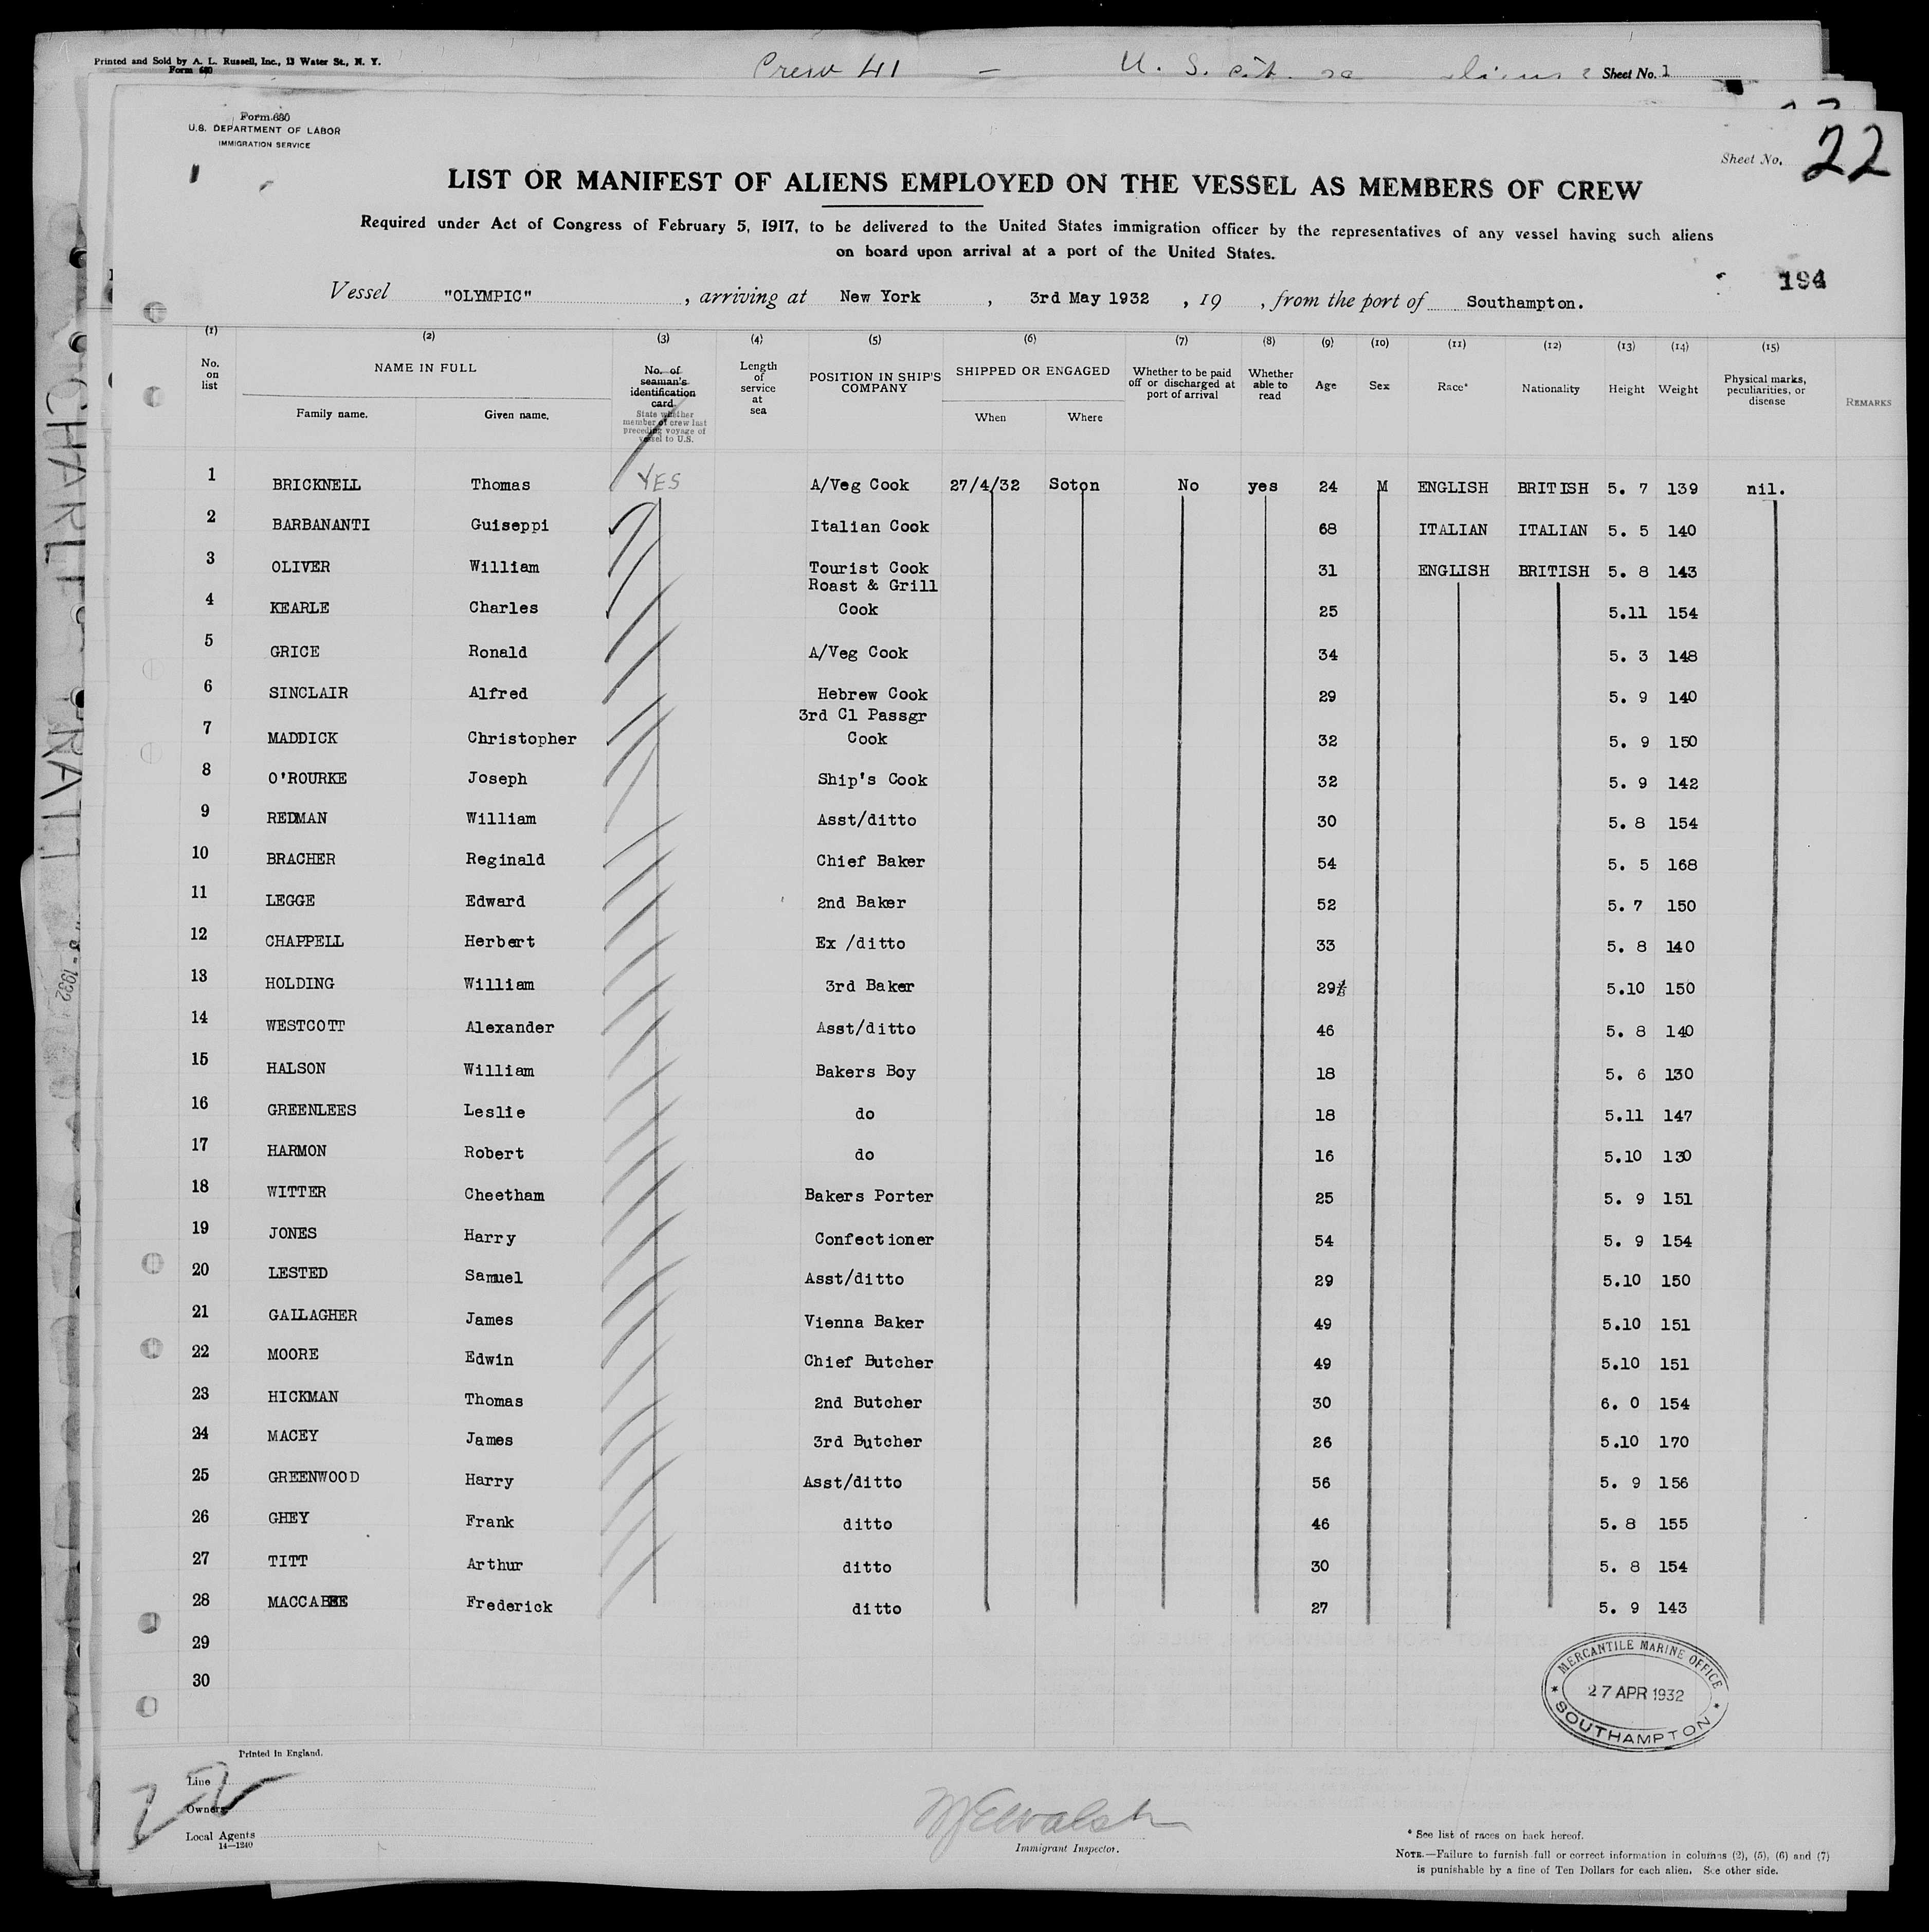 Printed and Sold by A. L. Russell, Inc., 13 Water St., N. Y.
Form 680
Crew 41 — U. S. cit.
Sheet No. 1
Form 680
U.S. DEPARTMENT OF LABOR
IMMIGRATION SERVICE
Sheet No. 22
LIST OR MANIFEST OF ALIENS EMPLOYED ON THE VESSEL AS MEMBERS OF CREW
Required under Act of Congress of February 5, 1917, to be delivered to the United States immigration officer by the representatives of any vessel having such aliens
on board upon arrival at a port of the United States.
194
Vessel "OLYMPIC", arriving at New York, 3rd May 1932, 19 , from the port of Southampton.
(1) (2) (3) (4) (5) (6) (7) (8) (9) (10) (11) (12) (13) (14) (15)
No. on list
NAME IN FULL
Family name. Given name.
No. of seaman's identification card
State whether member of crew last preceding voyage of vessel to U.S.
Length of service at sea
POSITION IN SHIP'S COMPANY
SHIPPED OR ENGAGED
When Where
Whether to be paid off or discharged at port of arrival
Whether able to read
Age
Sex
Race*
Nationality
Height
Weight
Physical marks, peculiarities, or disease
REMARKS
1 BRICKNELL Thomas YES A/Veg Cook 27/4/32 Soton No yes 24 M ENGLISH BRITISH 5. 7 139 nil.
2 BARBANANTI Guiseppi Italian Cook 68 ITALIAN ITALIAN 5. 5 140
3 OLIVER William Tourist Cook 31 ENGLISH BRITISH 5. 8 143
Roast & Grill
4 KEARLE Charles Cook 25 5.11 154
5 GRICE Ronald A/Veg Cook 34 5. 3 148
6 SINCLAIR Alfred Hebrew Cook 29 5. 9 140
3rd Cl Passgr
7 MADDICK Christopher Cook 32 5. 9 150
8 O'ROURKE Joseph Ship's Cook 32 5. 9 142
9 REDMAN William Asst/ditto 30 5. 8 154
10 BRACHER Reginald Chief Baker 54 5. 5 168
11 LEGGE Edward 2nd Baker 52 5. 7 150
12 CHAPPELL Herbert Ex /ditto 33 5. 8 140
13 HOLDING William 3rd Baker 29 5.10 150
14 WESTCOTT Alexander Asst/ditto 46 5. 8 140
15 HALSON William Bakers Boy 18 5. 6 130
16 GREENLEES Leslie do 18 5.11 147
17 HARMON Robert do 16 5.10 130
18 WITTER Cheetham Bakers Porter 25 5. 9 151
19 JONES Harry Confectioner 54 5. 9 154
20 LESTED Samuel Asst/ditto 29 5.10 150
21 GALLAGHER James Vienna Baker 49 5.10 151
22 MOORE Edwin Chief Butcher 49 5.10 151
23 HICKMAN Thomas 2nd Butcher 30 6. 0 154
24 MACEY James 3rd Butcher 26 5.10 170
25 GREENWOOD Harry Asst/ditto 56 5. 9 156
26 GHEY Frank ditto 46 5. 8 155
27 TITT Arthur ditto 30 5. 8 154
28 MACCABEE Frederick ditto 27 5. 9 143
29
30
MERCANTILE MARINE OFFICE
27 APR 1932
SOUTHAMPTON
Printed in England.
22
Line
Owners
Local Agents
14—1240
Immigrant Inspector.
* See list of races on back hereof.
NOTE.—Failure to furnish full or correct information in columns (2), (5), (6) and (7)
is punishable by a fine of Ten Dollars for each alien. See other side.